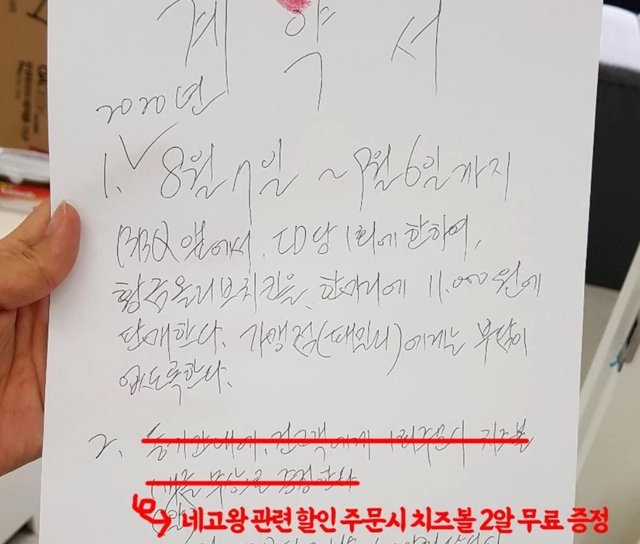 계약서
2020년
1. 8월 7일 ~ 9월 6일까지
BBQ 앱에서, ID당 1회에 한하여,
황금올리브치킨을 한마리에 11,000원에
판매한다. 가맹점(패밀리)에게는 부담이
없도록한다.
2. 고객에게 1회주문시 치즈볼
무상으로 증정한다
네고왕 관련 할인 주문시 치즈볼 2알 무료 증정